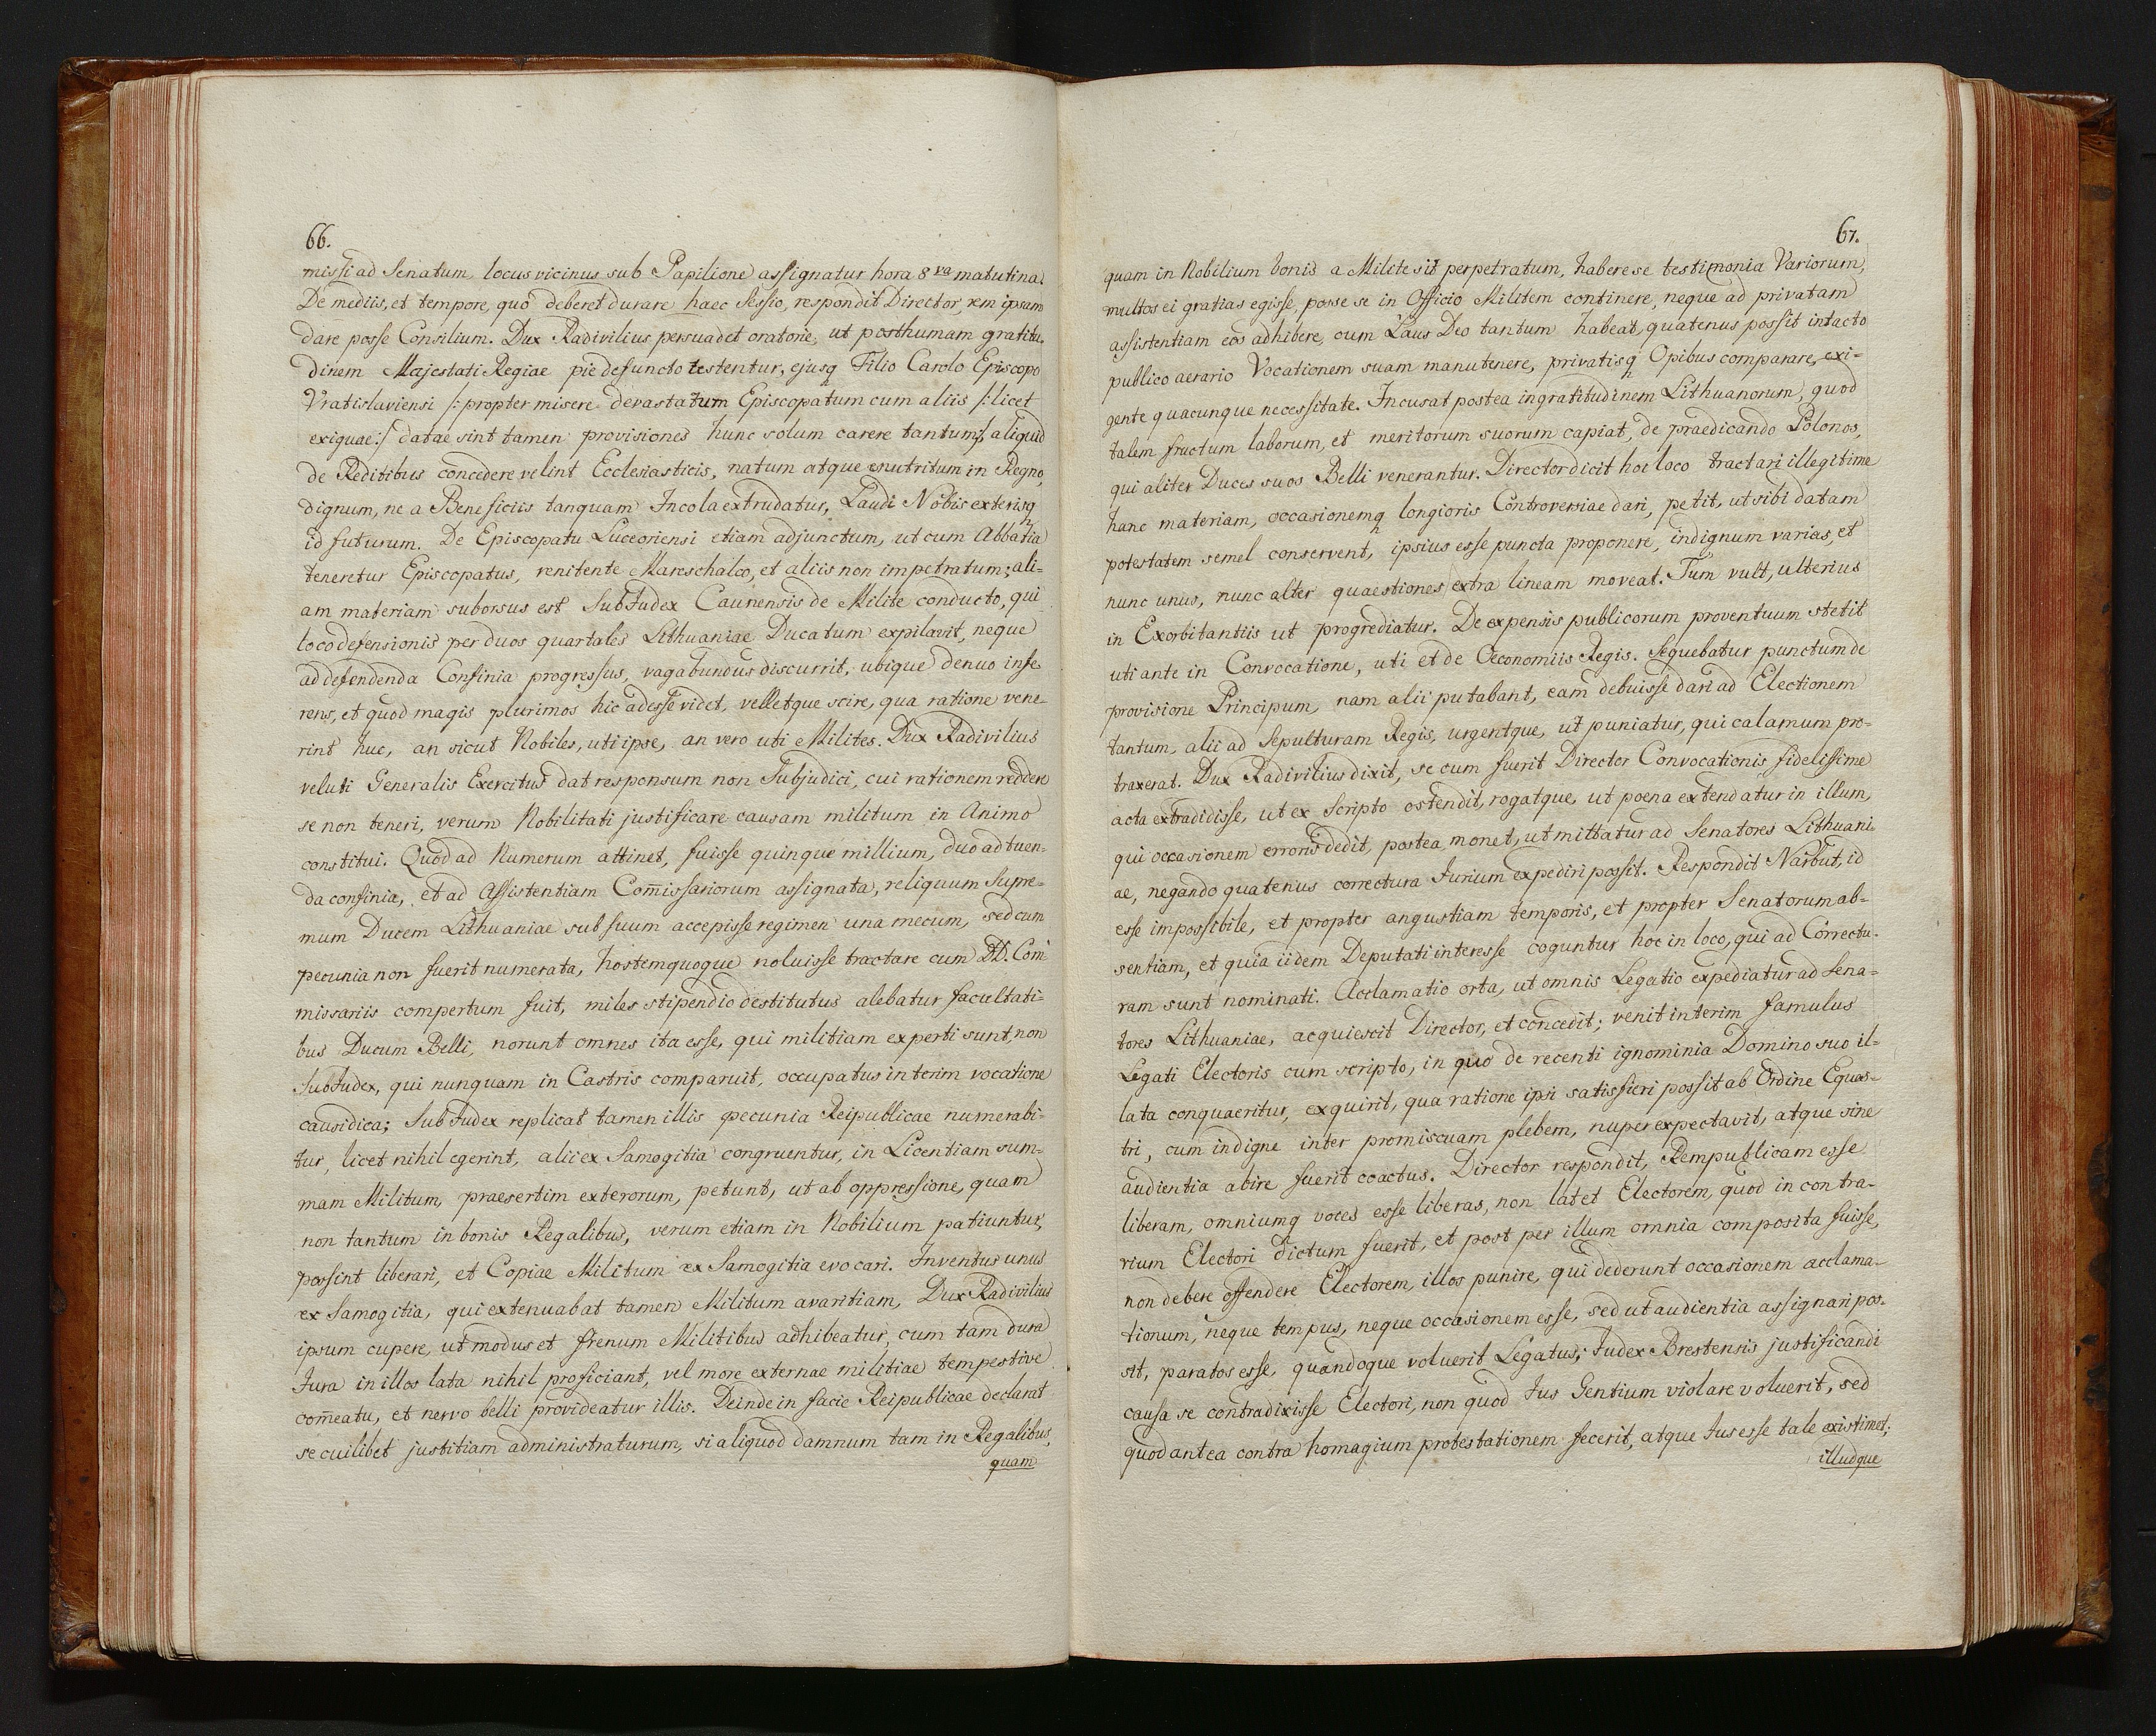 66.
missi ad Senatum, locus vicinus sub Papilione assignatur hora 8va matutina.
De mediis, et tempore, quo deberet durare haec Sessio, respondit Director, rem ipsam
dare posse Consilium. Dux Radivilius persuadet oratorie, ut posthumam gratitu-
dinem Majestati Regiae pie defuncto testentur, ejusq Filio Carolo Episcopo
Vratislaviensi /: propter misere devastatum Episcopatum cum aliis /: licet
exiguae :/ datae sint tamen provisiones hunc solum carere tantum :/ aliquid
de Reditibus concedere velint Ecclesiasticis, natum atque enutritum in Regno,
dignum, ne a Beneficiis tanquam Incola extrudatur, Laudi Nobis exterisq
id futurum. De Episcopatu Luceoriensi etiam adjunctum, ut cum Abbatia
teneretur Episcopatus, renitente Mareschalco, et aliis non impetratum; ali-
am materiam suborsus est SubJudex Caunensis de Milite conducto, qui
loco defensionis per duos quartales Lithuaniae Ducatum expilavit, neque
ad defendenda Confinia progressus, vagabundus discurrit, ubique denuo infe
rens, et quod magis plurimos hic adesse videt, velletque scire, qua ratione vene-
rint huc, an sicut Nobiles, uti ipse, an vero uti Milites. Dux Radivilius
veluti Generalis Exercitus dat responsum non Subjudici, cui rationem reddere
se non teneri, verum Nobilitati justificare causam militum in Animo
constitui. Quod ad Numerum attinet, fuisse quinque millium, duo ad tuen-
da confinia, et ad Assistentiam Com̄issariorum assignata, reliquum Supre-
mum Ducem Lithuaniae sub suum accepisse regimen una mecum, sed cum
pecunia non fuerit numerata, hostemquoque noluisse tractare cum DD. Com̄
missariis compertum fuit, miles stipendio destitutus alebatur facultati-
bus Ducum Belli, norunt omnes ita esse, qui militiam experti sunt, non
SubJudex, qui nunquam in Castris comparuit, occupatus interim vocatione
causidica; SubJudex replicat tamen illis pecunia Reipublicae numerabi-
tur, licet nihil egerint, alii ex Samogitia congruentur, in Licentiam sum-
mam Militum, praesertim exterorum, petunt, ut ab oppressione, quam
non tantum in bonis Regalibus, verum etiam in Nobilium patiuntur,
possint liberari, et Copiae Militum ex Samogitia evocari. Inventur unus
ex Samogitia, qui extenuabat tamen Militum avaritiam, Dux Radivilius
ipsum cupere, ut modus et frenum Militibus adhibeatur, cum tam dura
Jura in illos lata nihil proficiant, vel more externae militiae tempestive
com̄eatu, et nervo belli provideatur illis. Deinde in facie Reipublicae declarat
se cuilibet justitiam administraturum, si aliquod damnum tam in Regalibus,
quam
67.
quam in Nobilium bonis a Milite sit perpetratum, habere se testimonia Variorum,
multos ei gratias egisse, posse se in Officio Militem continere, neque ad privatam
assistentiam eos adhibere, cum Laus Deo tantum habeat, quatenus possit intacto
publico aerario Vocationem suam manutenere, privatisq Opibus comparare, exi-
gente quacunque necessitate. Incusat postea ingratitudinem Lithuanorum, quod
talem fructum laborum, et meritorum suorum capiat, de praedicando Polonos,
qui aliter Duces suos Belli venerantur. Director dicit hoc loco tractari illegitime
hanc materiam, occasionemq longioris Controversiae dari, petit, ut sibi datam
potestatem semel conservent, ipsius esse puncta proponere, indignum varias, et
nunc unus, nunc alter quaestiones extra lineam moveat. Tum vult, ulterius
in Exorbitantiis ut progrediatur. De expensis publicorum proventuum stetit
uti ante in Convocatione, uti et de Oeconomiis Regis. Sequebatur punctum de
provisione Principum, nam alii putabant, eam debuisse dari ad Electionem
tantum, alii ad Sepulturam Regis, urgentque, ut puniatur, qui calamum pro-
traxerat. Dux Radivilius dixit, se cum fuerit Director Convocationis fidelissime
acta extradidisse, ut ex Scripto ostendit, rogatque, ut poena extendatur in illum,
qui occasionem erroris dedit, postea monet, ut mittatur ad Senatores Lithuani-
ae, negando quatenus correctura Jurium expediri possit. Respondit Narbut, id
esse impossibile, et propter angustiam temporis, et propter Senatorum ab-
sentiam, et quia iidem Deputati interesse coguntur hoc in loco, qui ad Correctu-
ram sunt nominati. Acclamatio orta, ut omnis Legatio expediatur ad Sena-
tores Lithuaniae, acquiescit Director, et concedit; venit interim famulus
Legati Electoris cum scripto, in quo de recenti ignominia Domino suo il-
lata conquaeritur, exquirit, qua ratione ipsi satisfieri possit ab Ordine Eques-
tri, cum indigne inter promiscuam plebem, nuper expectavit, atque sine
audientia abire fuerit coactus. Director respondit, Rempublicam esse
liberam, omniumq voces esse liberas, non latet Electorem, quod in contra-
rium Electori dictum fuerit, et post per illum omnia composita fuisse,
non debere offendere Electorem, illos punire, qui dederunt occasionem acclama-
tionum, neque tempus, neque occasionem esse, sed ut audientia assignari pos-
sit, paratos esse, quandoque voluerit Legatus; Judex Brestensis justificandi
causa se contradixisse Electori, non quod Jus Gentium violare voluerit, sed
quod antea contra homagium protestationem fecerit, atque Jus esse tale existimet;
illudque